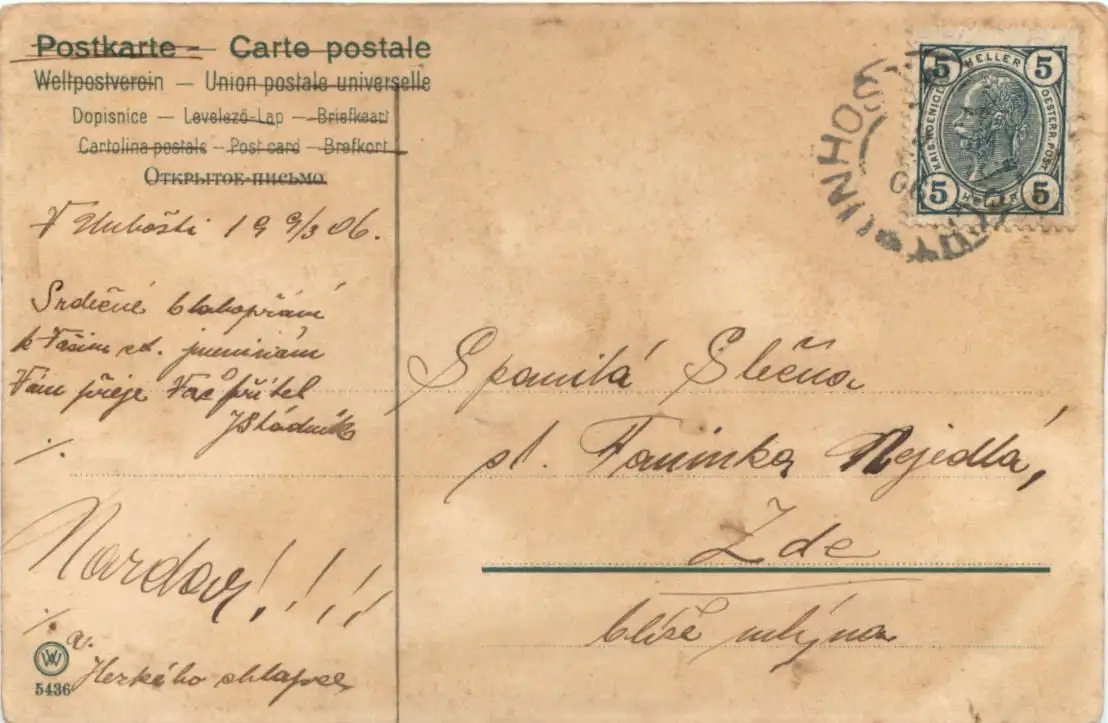 Postkarte — Carte postale
Weltpostverein — Union postale universelle
Dopisnice — Levelező-Lap — Briefkaart
Cartolina postale — Post card — Brefkort
Открытое-письмо.
5 HELLER 5
KAIS. KOENIGL. OESTERR. POST
5 HELLER 5
UNHOŠ
V 19 9/3 06.
Srdečné blahopřání
k Vašim sl. jmeninám
Vám přeje Váš přítel
Spanilá Slečna
sl. Faninka Nejedlá,
Zde
blíže mlýna
Nazdar! ! ! !
a.
Hezkého chlapce
W
5436